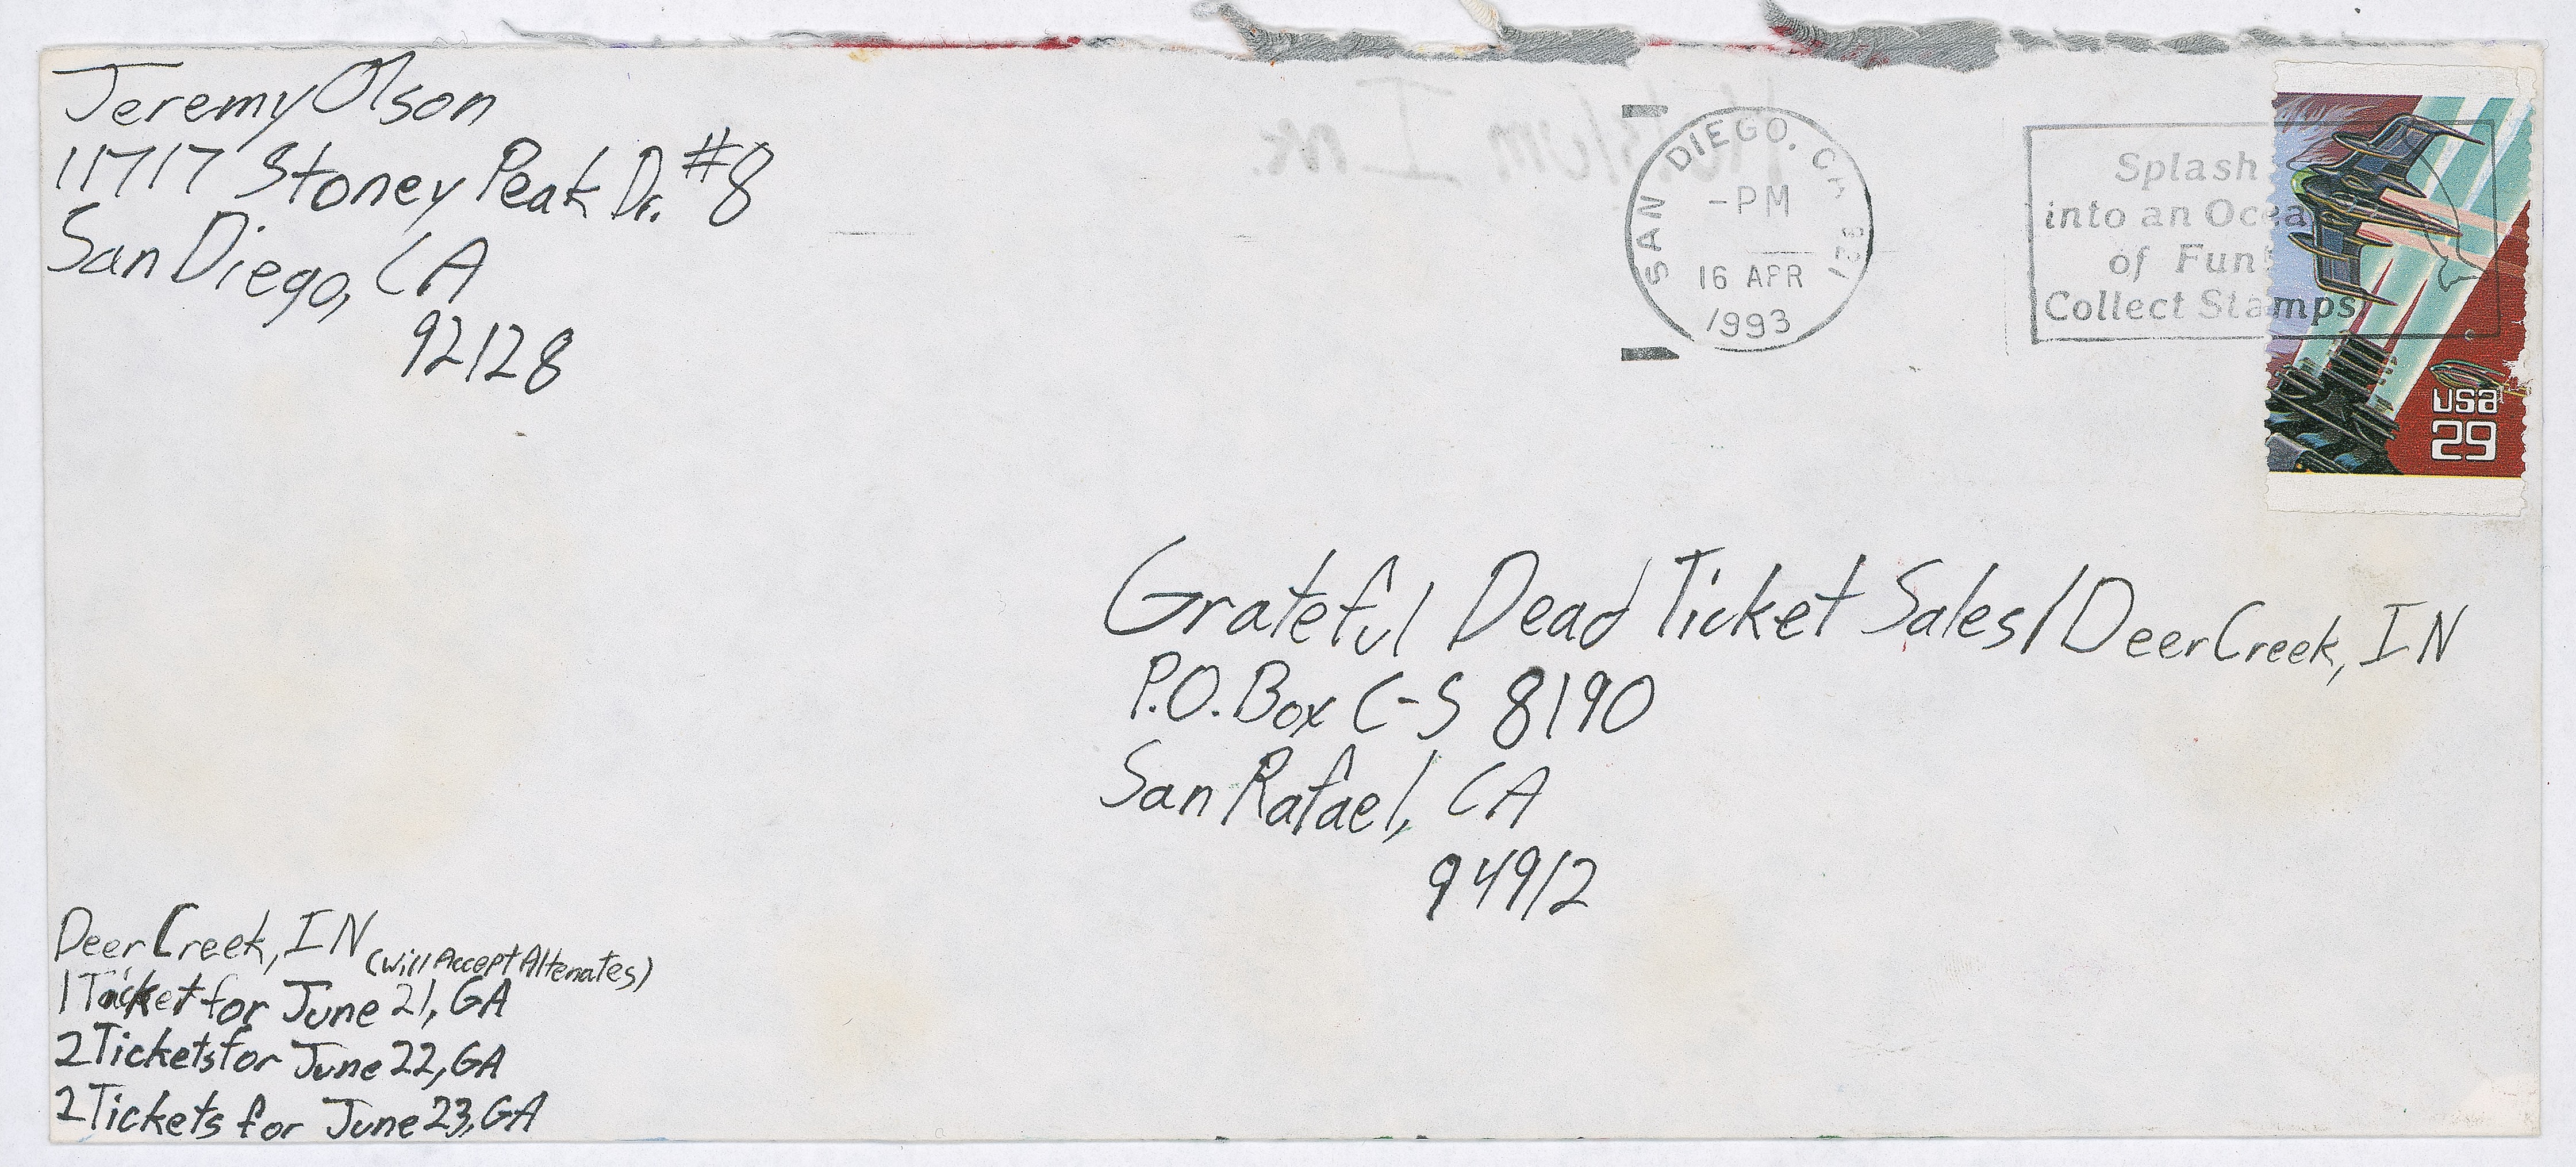 Jeremy Olson
11717 Stoney Peak Dr. #8
San Diego, CA
92128
SAN DIEGO, CA
-PM
16 APR
1993
Splash
into an Ocean
of Fun!
Collect Stamps
USA
29
Grateful Dead Ticket Sales/Deer Creek, IN
P.O. Box C-S 8190
San Rafael, CA
94912
Deer Creek, IN (Will Accept Altenates)
1 Ticket for June 21, GA
2 Tickets for June 22, GA
2 Tickets for June 23, GA